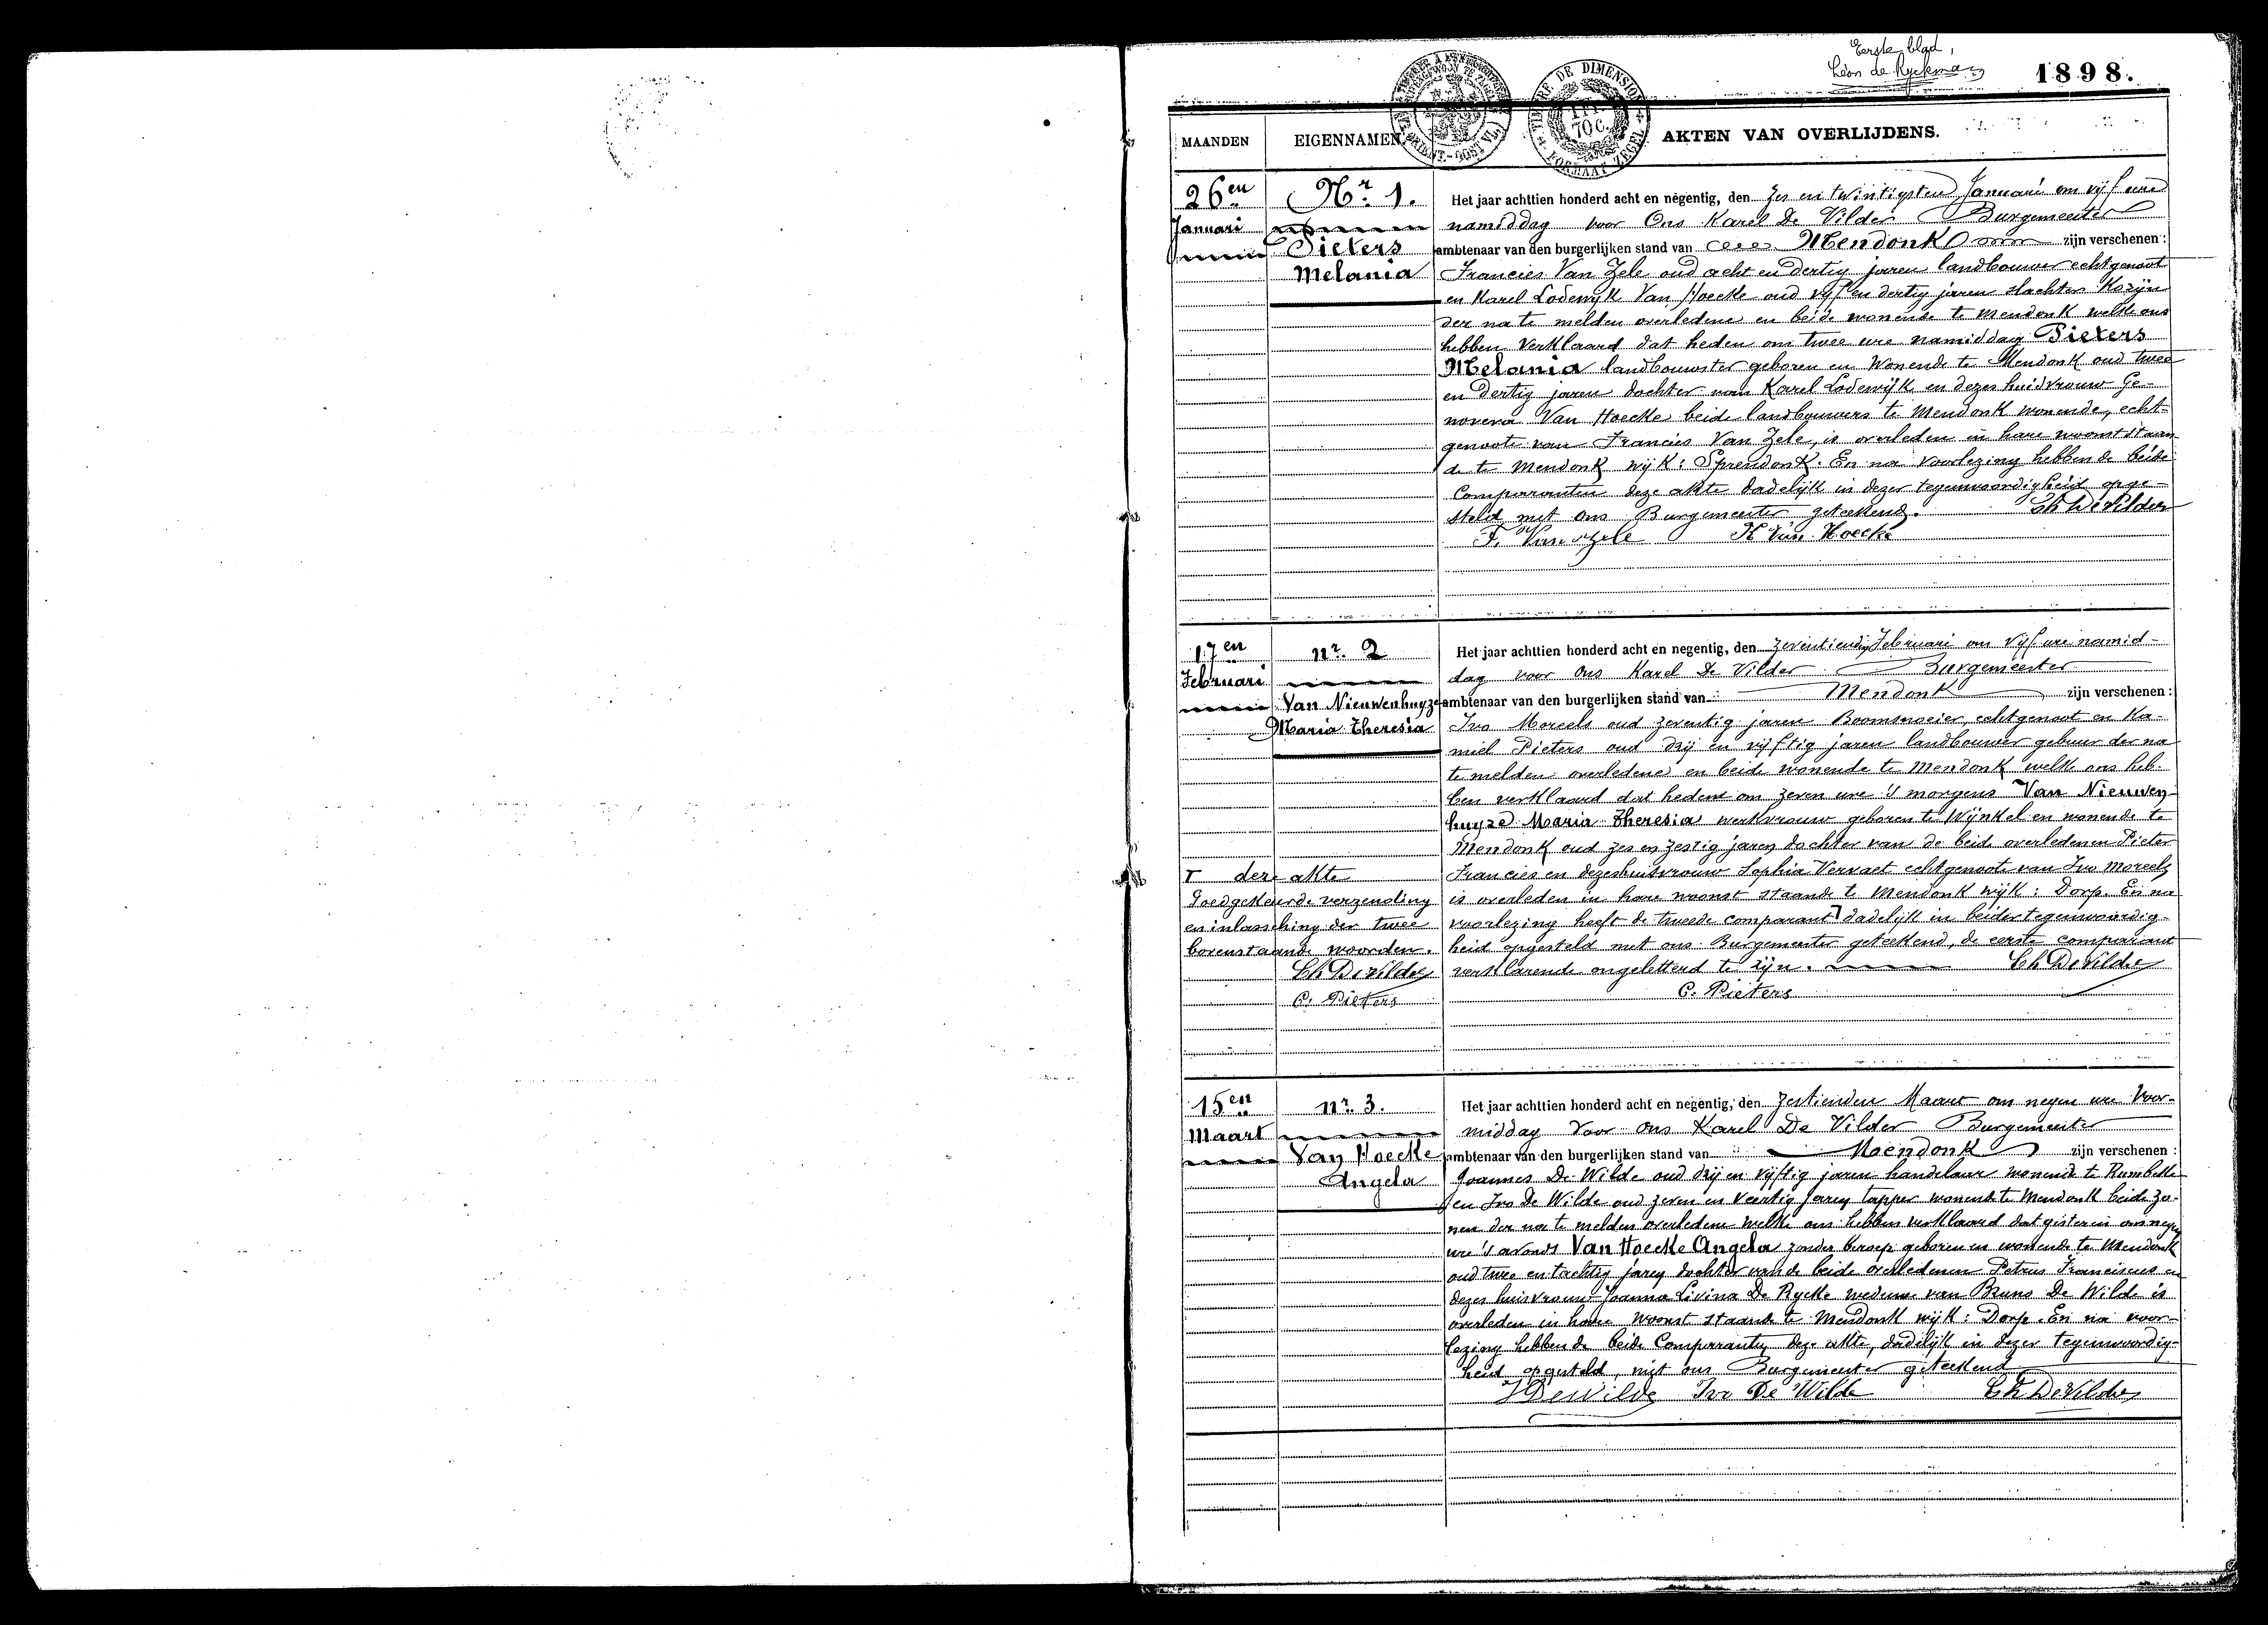 Eerste blad,
Léon de Ryckman
1898.
TIMBRE DE DIMENSION
1 Fr.
70 C.
FORMAAT ZEGEL
MAANDEN
EIGENNAMEN
AKTEN VAN OVERLIJDENS.
26en
Januari
Nr. 1.
Pieters
Melania
Het jaar achttien honderd acht en negentig, den zes en twintigsten Januari om vijf ure
namiddag voor Ons Karel De Vilder Burgemeester
ambtenaar van den burgerlijken stand van Mendonk zijn verschenen :
Francies Van Zele oud acht en dertig jaren landbouwer echtgenoot
en Karel Lodewijk Van Hoecke oud vijf en dertig jaren slachter Kozijn
der na te melden overledene en beide wonende te Mendonk welke ons
hebben verklaard dat heden om twee ure namiddag Pieters
Melania landbouwster geboren en wonende te Mendonk oud twee
en dertig jaren dochter van Karel Lodewijk en dezes huisvrouw Ge-
noveva Van Hoecke beide landbouwers te Mendonk wonende, echt-
genoote van Francies Van Zele, is overleden in hare woonst staan-
de te Mendonk wijk : Sprendonk. En na voorlezing hebben de beide
Comparanten deze akte dadelijk in dezer tegenwoordigheid opge-
steld met ons Burgemeester geteekend. Ch De Vilder
F. Van Zele K Van Hoecke
17en
Februari
nr. 2
Van Nieuwenhuyze
Maria Theresia
Het jaar achttien honderd acht en negentig, den zeventienden Februari om vijf ure namid-
dag voor Ons Karel De Vilder Burgemeester
ambtenaar van den burgerlijken stand van Mendonk zijn verschenen :
Ivo Moreels oud zeventig jaren Boomsnoeier, echtgenoot en Ka-
miel Pieters oud drij en vijftig jaren landbouwer gebuur der na
te melden overledene en beide wonende te Mendonk welke ons heb-
ben verklaard dat heden om zeven ure 's morgens Van Nieuwen-
huyze Maria Theresia werkvrouw geboren te Wynkel en wonende te
Mendonk oud zes en zestig jaren dochter van de beide overledenen Pieter
Francies en dezes huisvrouw Sophia Vervaet echtgenoote van Ivo Moreels
is overleden in hare woonst staande te Mendonk wijk : Dorp. En na
voorlezing heeft de tweede comparant T dadelijk in beider tegenwoordig-
heid opgesteld met ons Burgemeester geteekend, de eerste comparant
verklarende ongeletterd te zijn. Ch De Vilder
C. Pieters
T deze akte
Goedgekeurde verzending
en inlassching der twee
bovenstaande woorden.
Ch De Vilder
C. Pieters
15en
Maart
nr. 3.
Van Hoecke
Angela
Het jaar achttien honderd acht en negentig, den zestienden Maart om negen ure Voor-
middag voor ons Karel De Vilder Burgemeester
ambtenaar van den burgerlijken stand van Mendonk zijn verschenen :
Joannes De Wilde oud drij en vijftig jaren handelaar wonende te Rumbeke
en Ivo De Wilde oud zeven en veertig jaren tapper wonende te Mendonk beide zo-
nen der na te melden overledene welke ons hebben verklaard dat gisteren om negen
ure 's avonds Van Hoecke Angela zonder beroep geboren en wonende te Mendonk
oud twee en tachtig jaren dochter van de beide overledenen Petrus Franciscus en
dezes huisvrouw Joanna Livina De Rycke weduwe van Bruno De Wilde is
overleden in hare woonst staande te Mendonk wijk : Dorp. En na voor-
lezing hebben de beide Comparanten deze akte, dadelijk in dezer tegenwoordig-
heid opgesteld, met ons Burgemeester geteekend
J DeWilde Ivo De Wilde Ch De Vilder